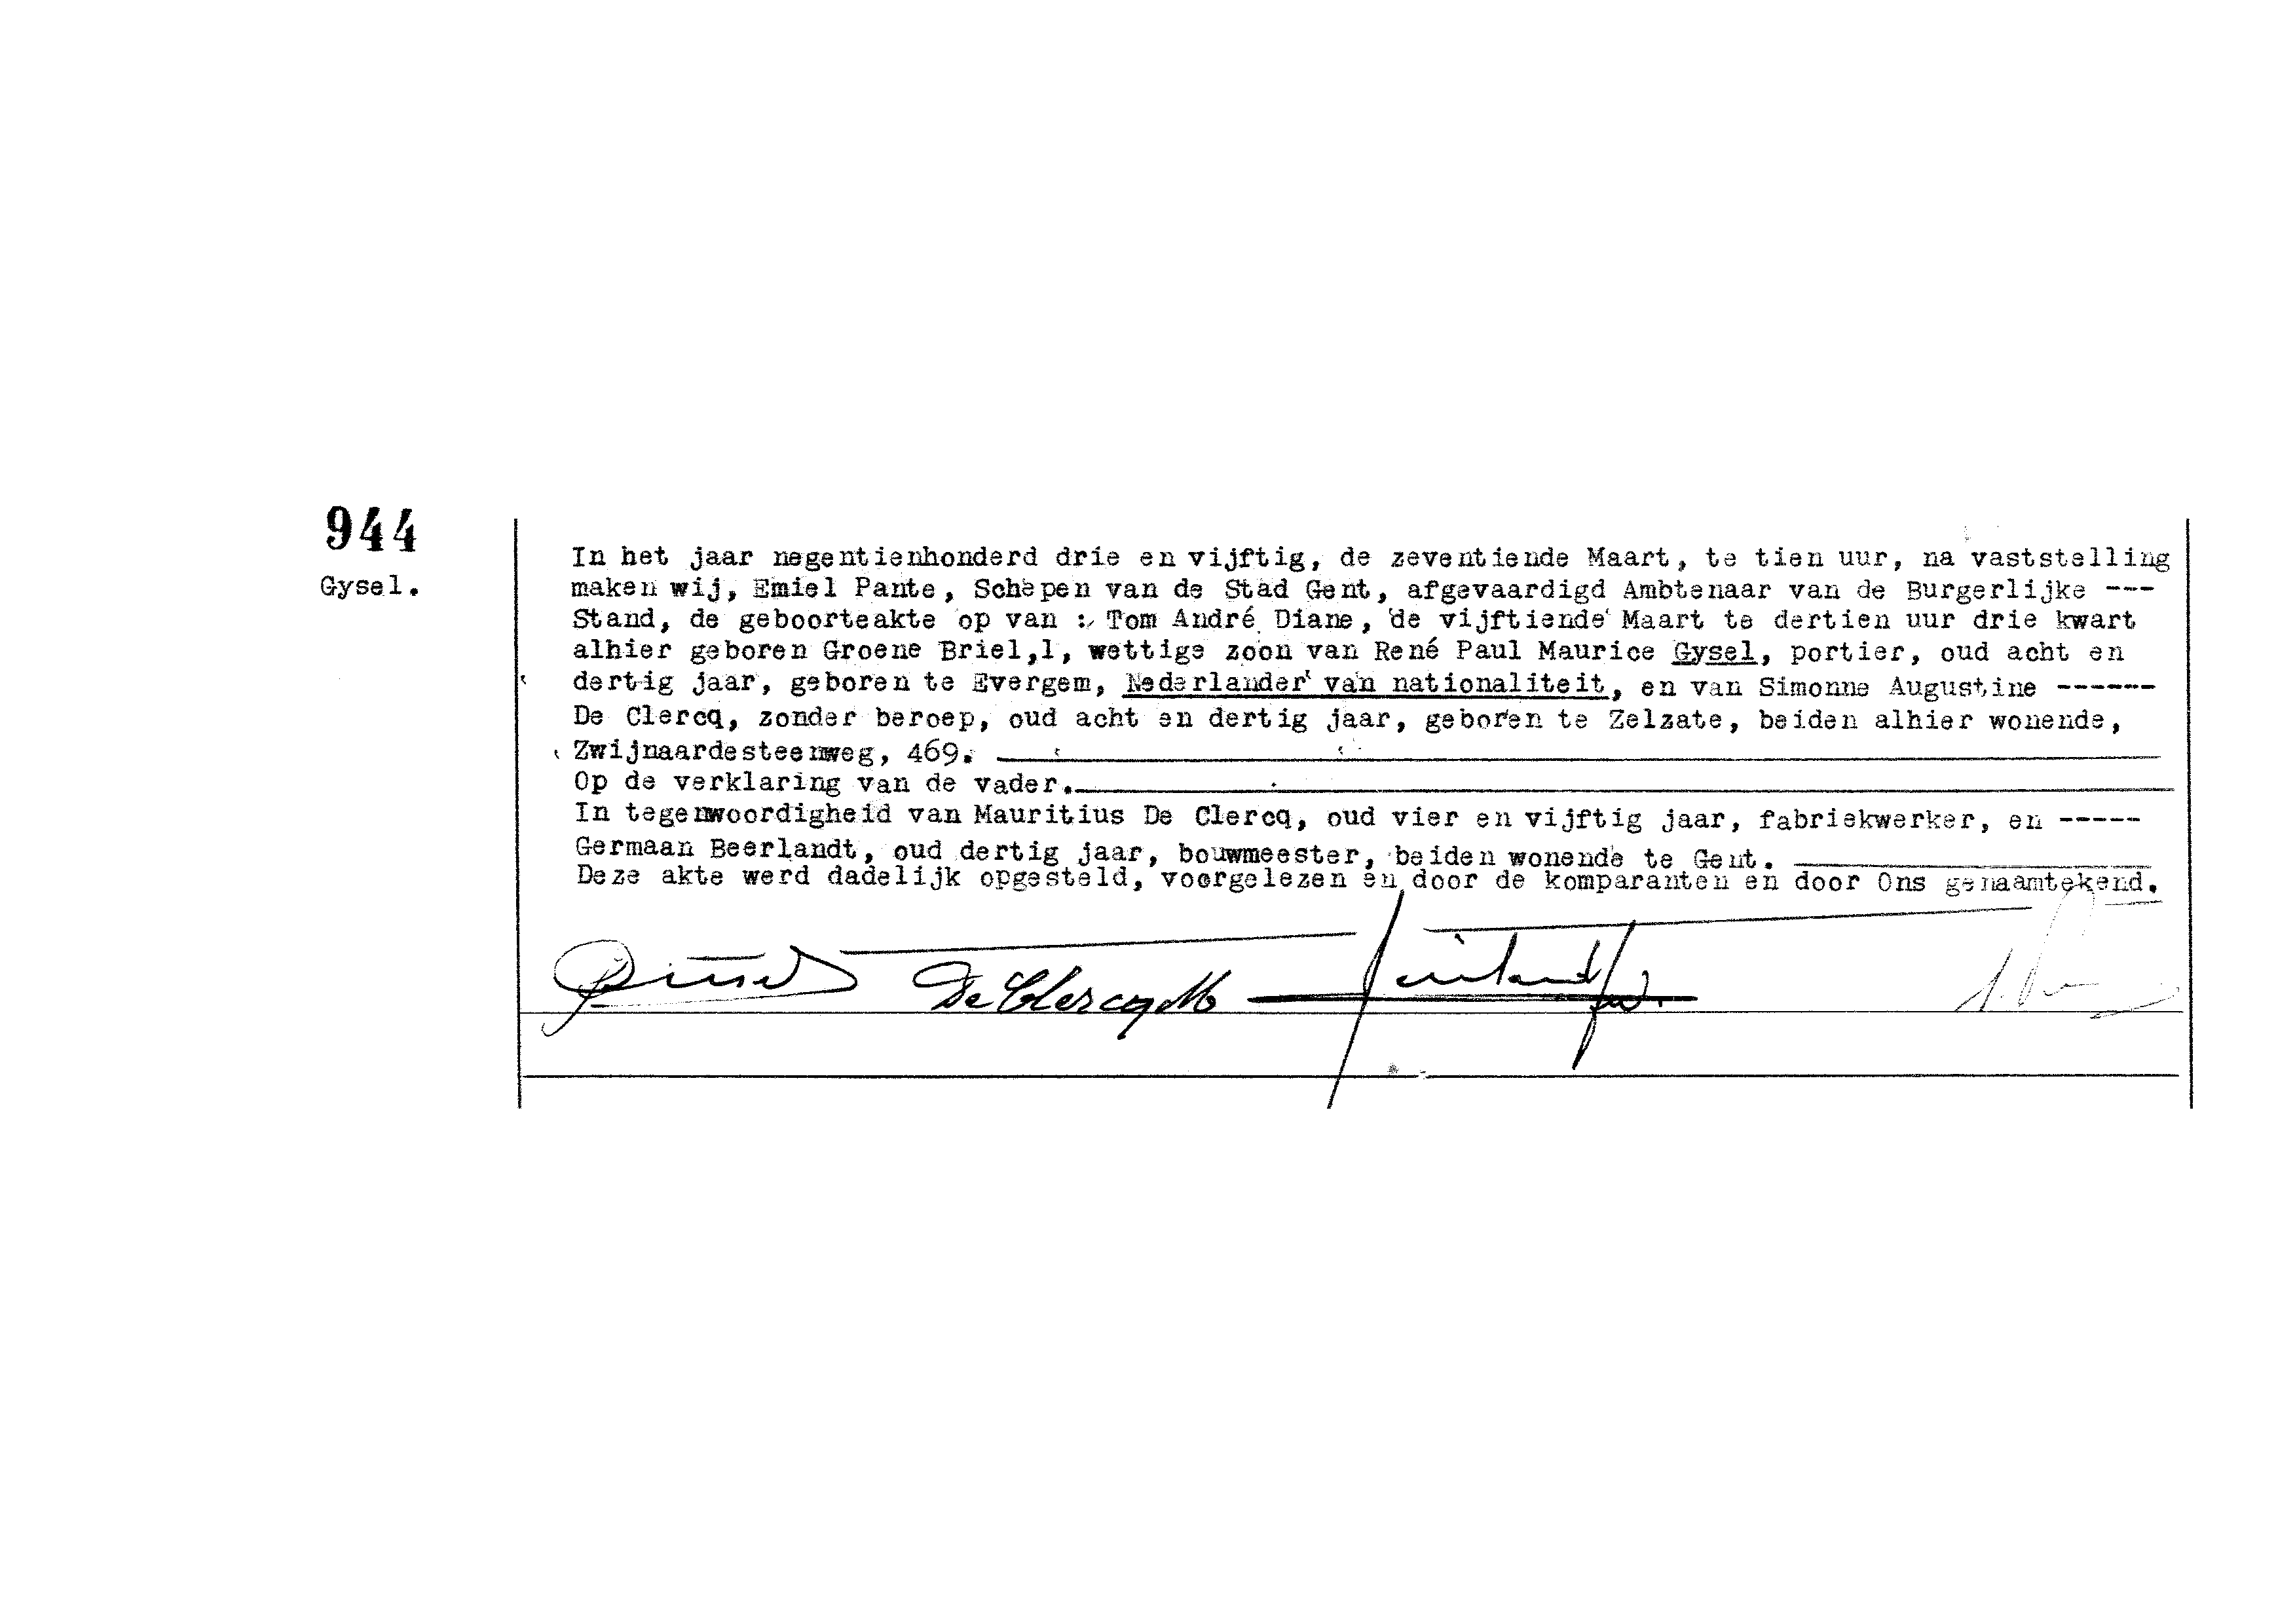 944
Gysel.
In het jaar negentienhonderd drie en vijftig, de zeventiende Maart, te tien uur, na vaststelling
maken wij, Emiel Pante, Schepen van de Stad Gent, afgevaardigd Ambtenaar van de Burgerlijke ---
Stand, de geboorteakte op van : Tom André Diane, de vijftiende Maart te dertien uur drie kwart
alhier geboren Groene Briel,1, wettige zoon van René Paul Maurice Gysel, portier, oud acht en
dertig jaar, geboren te Evergem, Nederlander van nationaliteit, en van Simonne Augustine ------
De Clercq, zonder beroep, oud acht en dertig jaar, geboren te Zelzate, beiden alhier wonende,
Zwijnaardesteenweg, 469.
Op de verklaring van de vader.
In tegenwoordigheid van Mauritius De Clercq, oud vier en vijftig jaar, fabriekwerker, en -----
Germaan Beerlandt, oud dertig jaar, bouwmeester, beiden wonende te Gent.
Deze akte werd dadelijk opgesteld, voorgelezen en door de komparanten en door Ons genaamtekend.
De Clercq M